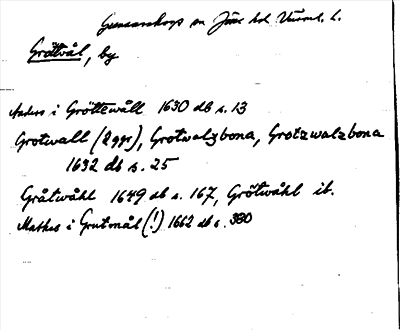 Gunnarskogs sn Jösse hd Värml. l.
Gröttvål, by
Anders i Gröttewåll 1630 db s. 13
Grotwall (2 ggr), Grotwalzbona, Grotzwalzbona
1632 db s. 25
Gråtwåhl 1649 db s. 167, Grötwåhl ib.
Mathes i Grutmål (!) 1662 db s. 380